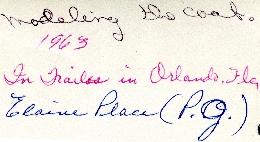 modeling his coat.
1963
In Trailer in Orlando. Fla
Elaine Place (P.G.)